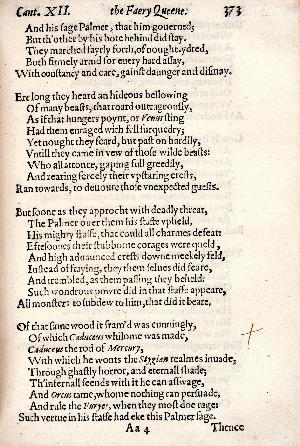 Cant. XII. the Faery Queene. 373
And his sage Palmer, that him gouerned;
But th'other by his bote behind did stay.
They marched fayrly forth, of nought ydred,
Both firmely armd for euery hard assay,
With constancy and care, gainst daunger and dismay.
Ere long they heard an hideous bellowing
Of many beasts, that roard outrageously,
As if that hungers poynt, or Venus sting
Had them enraged with fell surquedry;
Yet nought they feard, but past on hardily,
Vntill they came in vew of those wilde beasts:
Who all attonce, gaping full greedily,
And rearing fercely their vpstaring crests,
Ran towards, to deuoure those vnexpected guests.
But soone as they approcht with deadly threat,
The Palmer ouer them his staffe vpheld,
His mighty staffe, that could all charmes defeat:
Eftesoones their stubborne corages were queld,
And high aduaunced crests downe meekely feld,
Instead of fraying, they them selues did feare,
And trembled, as them passing they beheld:
Such wondrous powre did in that staffe appeare,
All monsters to subdew to him, that did it beare.
Of that same wood it fram'd was cunningly,
Of which Caduceus whilome was made,
Caduceus the rod of Mercury,
With which he wonts the Stygian realmes inuade,
Through ghastly horror, and eternall shade;
Th'infernall feends with it he can asswage,
And Orcus tame, whome nothing can persuade,
And rule the Furyes, when they most doe rage:
Such vertue in his staffe had eke this Palmer sage.
Aa 4 Thence